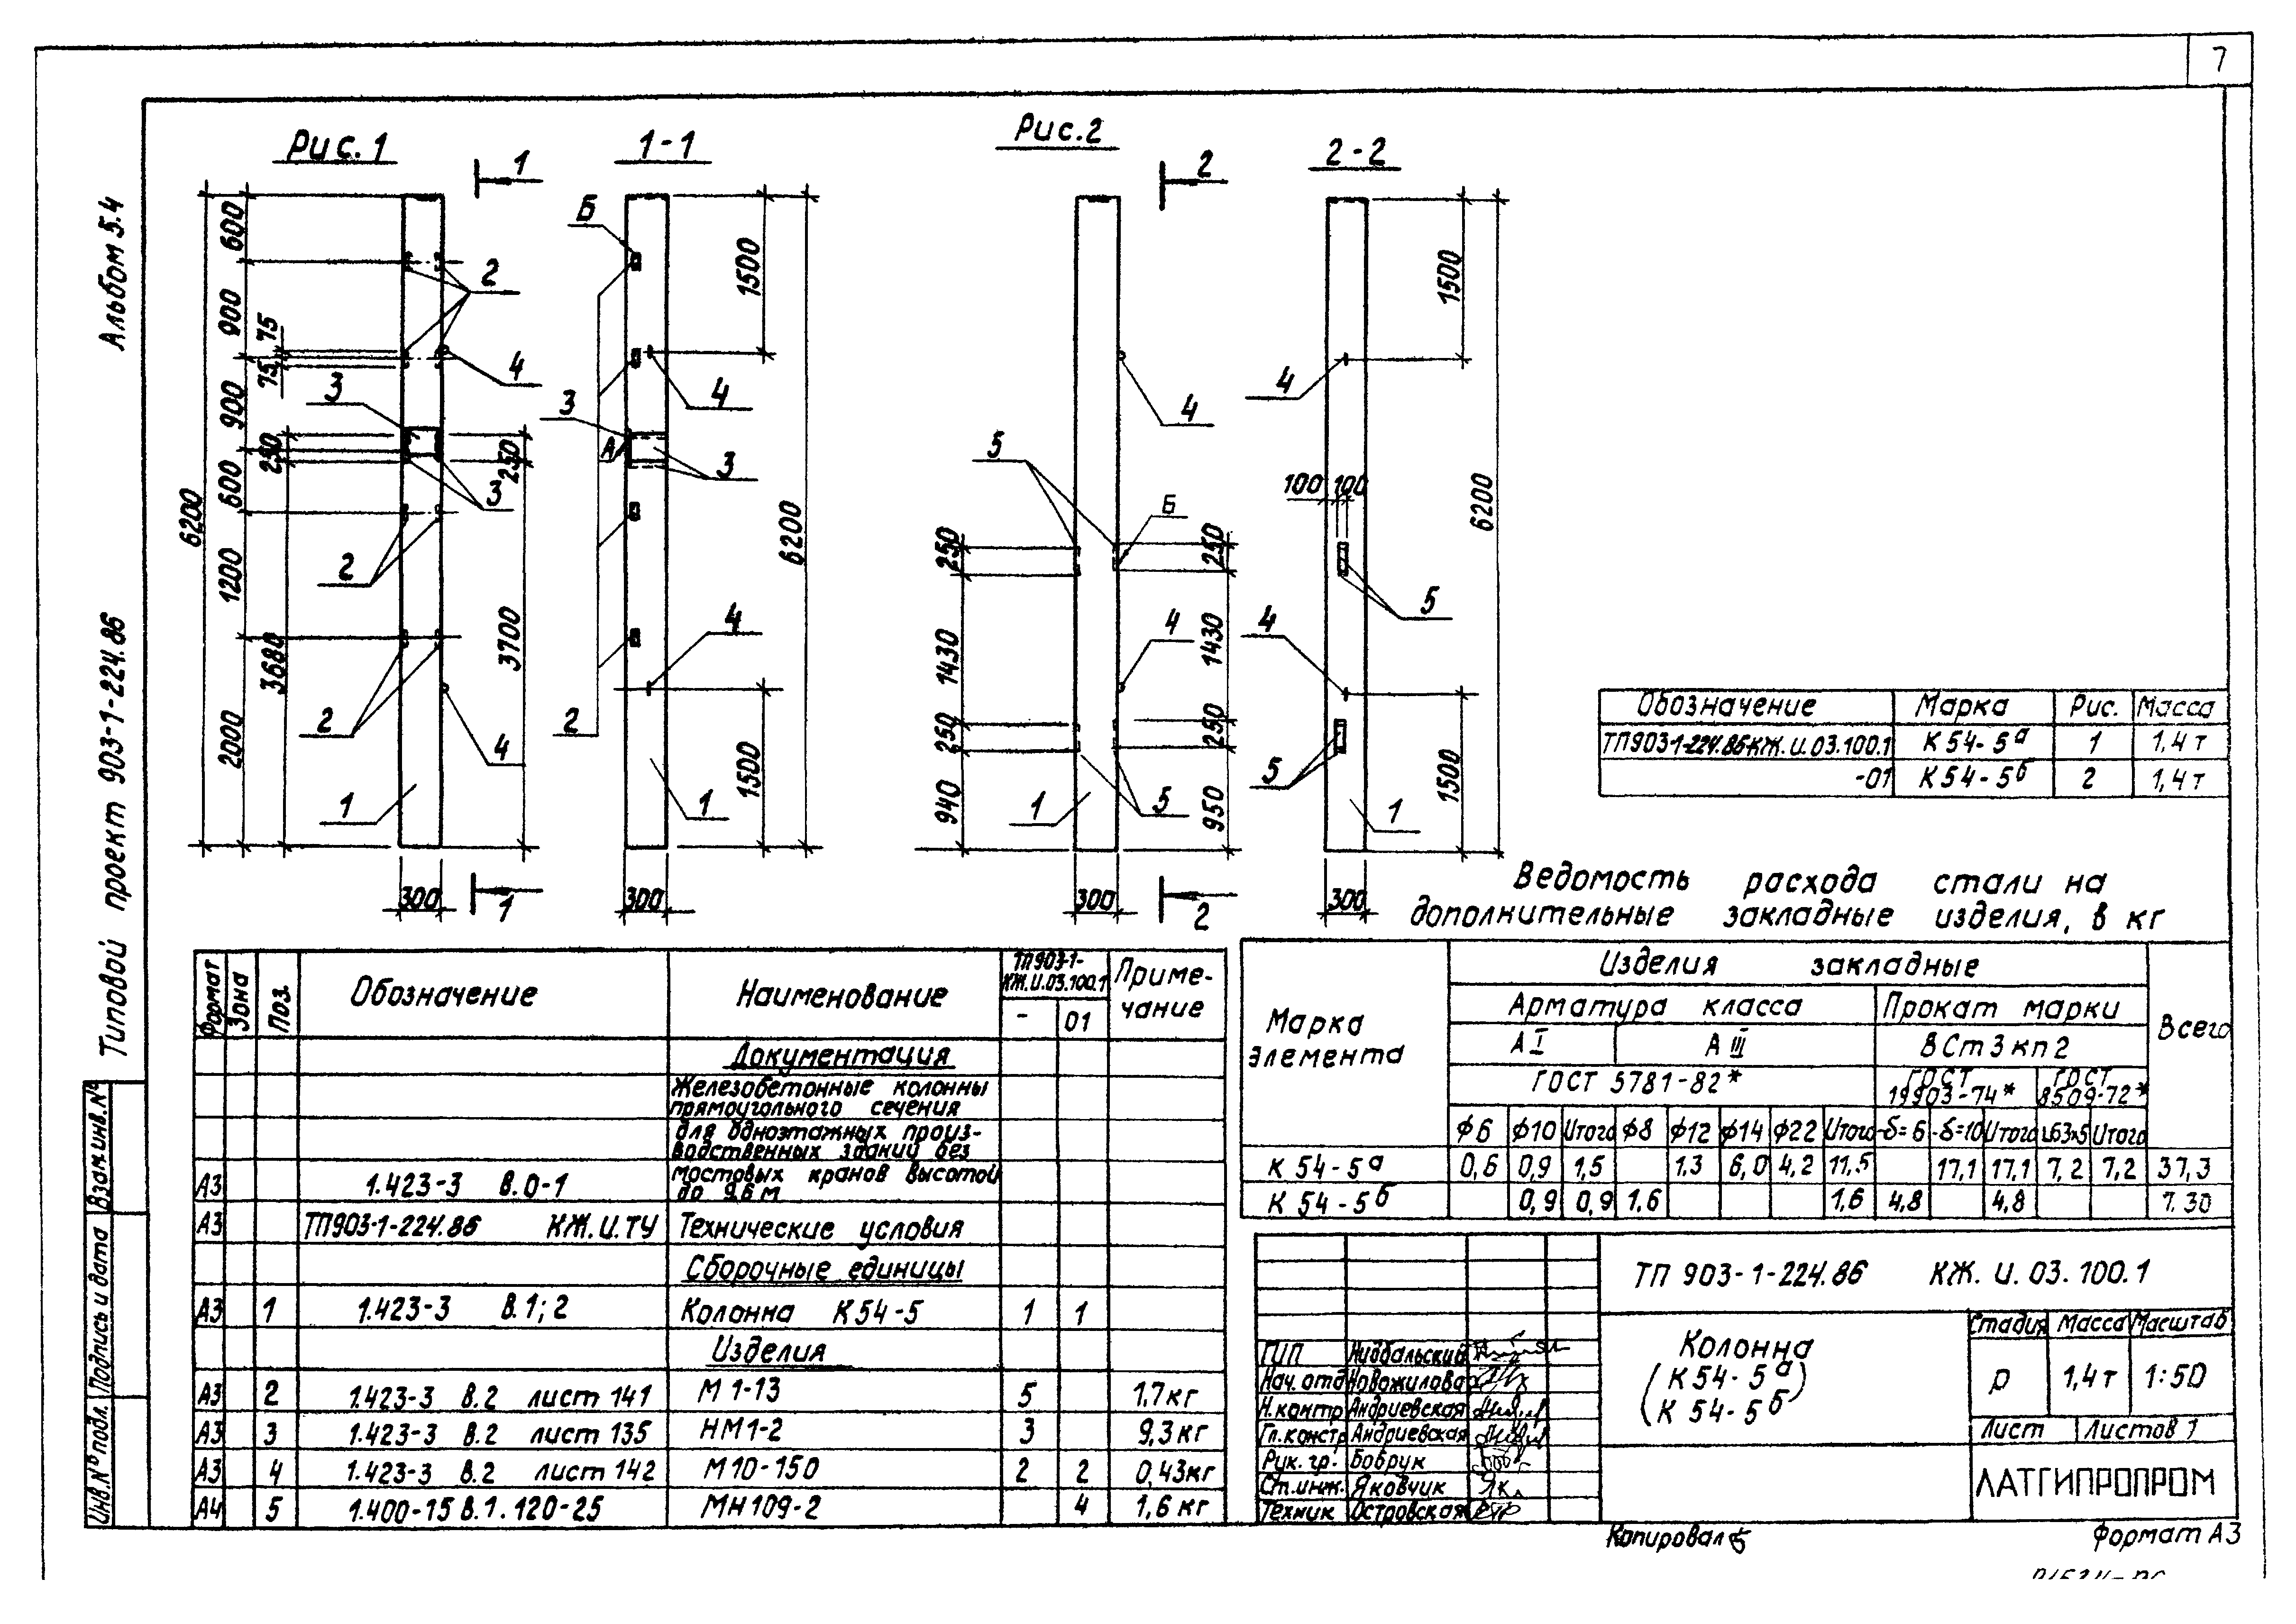 7
Альбом 5.4
Типовой проект 903-1-224.86
Взам.инв.№
Подпись и дата
Инв.№подл.
Рис.1
1
1-1
Рис.2
2
2-2
6200
600
900
75
75
900
250
600
1200
3680
2000
2
4
3
3
250
2
3700
2
4
1
300
1
Б
1500
4
3
А
3
6200
4
2
1500
1
300
4
5
Б
250
250
4
1430
1430
250
250
940
950
1
5
300
2
1500
4
100
100
6200
5
4
5
1500
1
300
Обозначение Марка Рис. Масса
ТП903-1-224.86-КЖ.И.03.100.1 К 54-5а 1 1,4 т
-01 К 54-5б 2 1,4 т
Ведомость расхода стали на
дополнительные закладные изделия, в кг
Марка элемента
Изделия закладные
Всего
Арматура класса Прокат марки
А I А III ВСт3кп2
ГОСТ 5781-82* ГОСТ 19903-74* ГОСТ 8509-72*
ф6 ф10 Итого ф8 ф12 ф14 ф22 Итого -δ=6 -δ=10 Итого L63x5 Итого
К 54-5а 0,6 0,9 1,5 1.3 6,0 4,2 11,5 17,1 17,1 7,2 7,2 37,3
К 54-5б 0,9 0,9 1.6 1,6 4,8 4,8 7.30
Формат Зона Поз. Обозначение Наименование ТП903-1- КЖ.И.03.100.1 Приме-
чание
- 01
Документация
Железобетонные колонны
прямоугольного сечения
для одноэтажных произ-
водственных зданий без
мостовых кранов высотой
до 9,6 м
А3 1.423-3 в.0-1
А3 ТП903-1-224.86 КЖ.И.ТУ Технические условия
Сборочные единицы
А3 1 1.423-3 в.1;2 Колонна К54-5 1 1
Изделия
А3 2 1.423-3 в.2 лист 141 М 1-13 5 1,7кг
А3 3 1.423-3 в.2 лист 135 НМ1-2 3 9,3кг
А3 4 1.423-3 в.2 лист 142 М10-150 2 2 0,43кг
А4 5 1.400-15 в.1.120-25 МН109-2 4 1,6 кг
ТП 903-1-224.86 КЖ. И. 03. 100.1
Колонна
(К 54-5а)
(К 54-5б)
Стадия Масса Масштаб
р 1,4т 1:50
Лист Листов 1
ЛАТГИПРОПРОМ
ГИП
Нач.отд Новожилова
Н.контр Андриевская
Гл.констр Андриевская
Рук. гр. Бобрук
Ст.инж. Яковчик
Техник Островская
Копировал
Формат А3